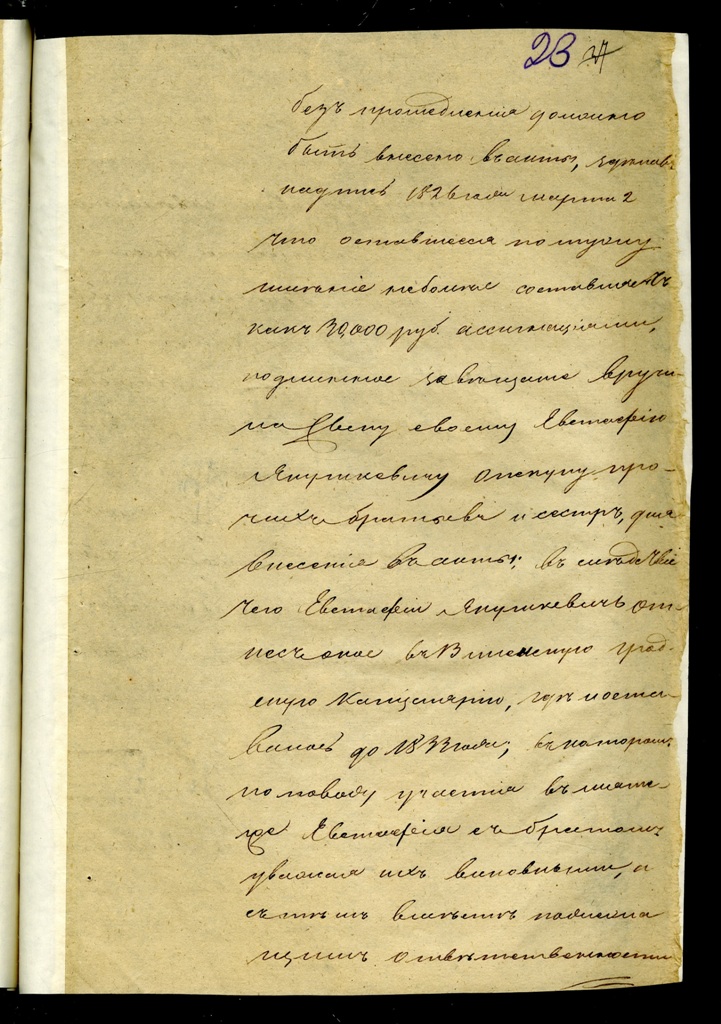 23
безъ промедленія должно
быть внесено въ акты, сдѣлавъ
надпись 1826 года марта 2
что оставшееся по мужу
имѣніе небольше составляетъ
какъ 30,000 руб. ассигнаціями,
подлинное завѣщаніе вручи-
ла Евстафію
Янушкевичу опекуну про-
чихъ братьевъ и сестръ, для
внесенія въ акты; въ слѣдствіе
чего Евстафій Янушкевичъ от-
несъ оное въ Виленскую град-
скую Канцелярію, гдѣ остава-
валось до 1833 года; въ которомъ
по поводу участія въ мяте-
жѣ Евстафія съ братомъ
уважая ихъ виновными, и
съ тѣмъ вмѣстѣ подлежа-
щимъ отвѣтственности